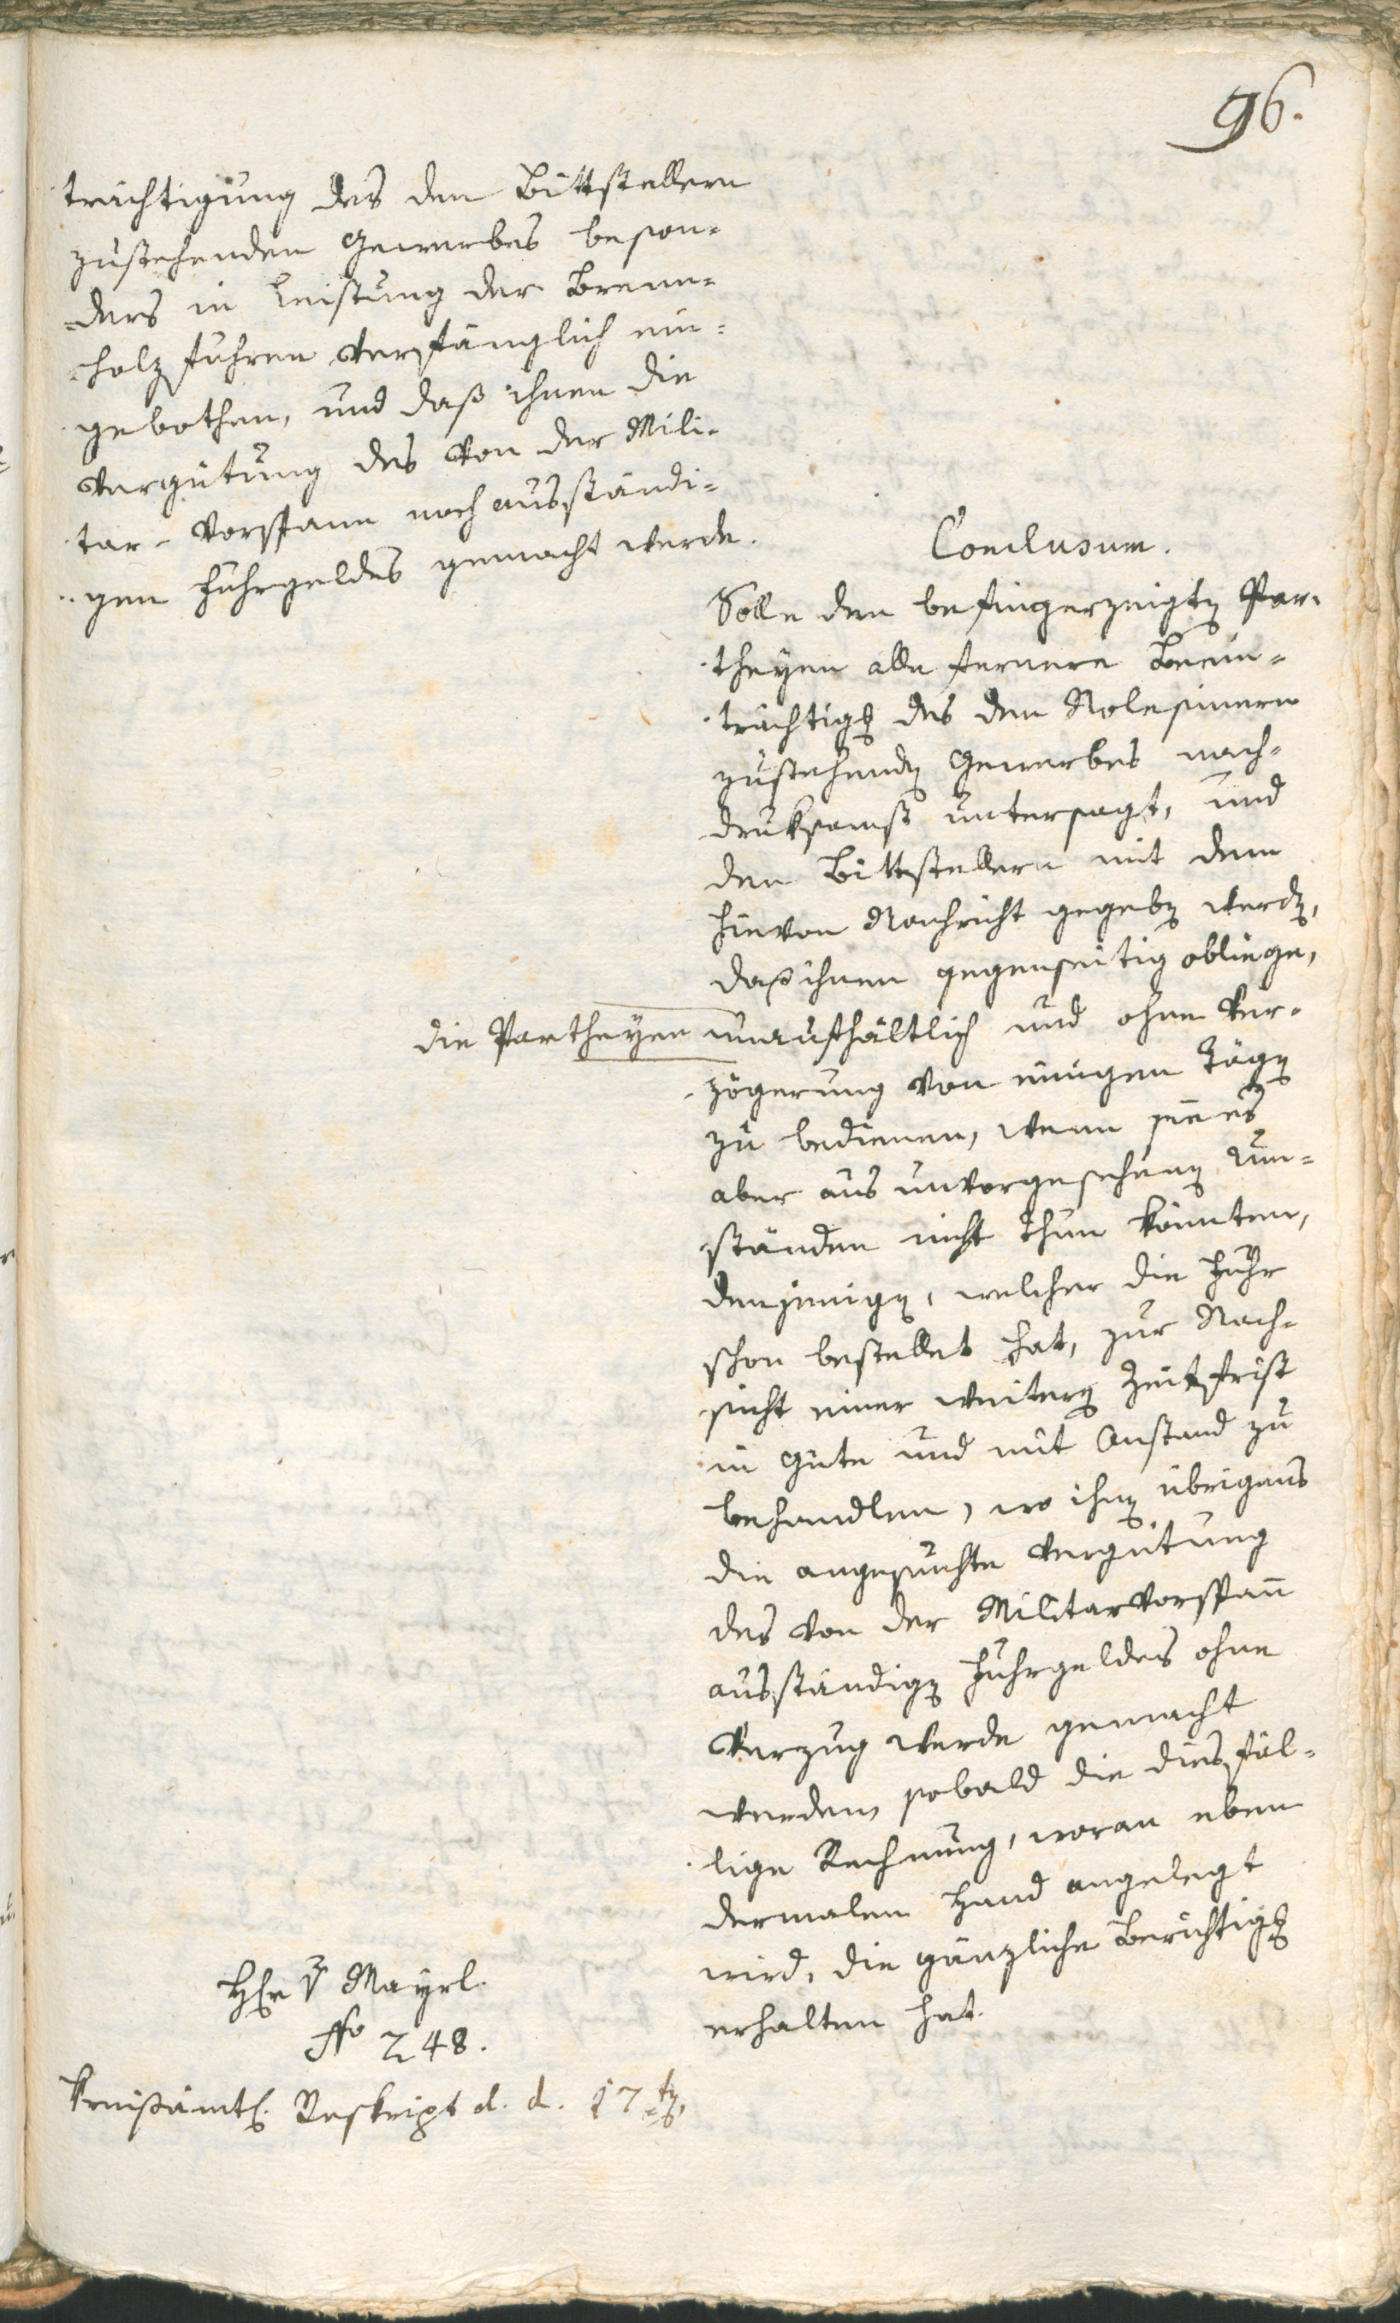 96.
trächtigung des den Bittstellern
zustehenden Gewerbes beson-
ders in Leistung der Brenn-
holz fuhren verfänglich ein-
gebothen, und daß ihnen die
Vergütung des von der Mili-
tar-Vorspann noch ausständi-
gen Fuhrgeldes gemacht werde.
Conclusum.
Solle den befingerzeigten Par-
theyen alle fernere Beein-
trächtigg des den Rolesinern
zustehenden Gewerbes nach-
druksamst untersagt, und
den Bittstellern mit dem
hievon Nachricht gegeben werden,
daß ihnen gegenseitig obliege,
die Partheyen unaufhältlich und ohne Ver-
zögerung von einigen Tägen
zu bedienen, wenn sie es
aber aus unvorgesehenen Um-
ständen nicht thun könnten,
denjenigen, welcher die Fuhr
schon bestellet hat, zur Nach-
sicht einer weitern Zeitfrist
in Güte und mit Anstand zu
behandlen, wo ihnen übrigens
die angesuchte Vergütung
des von der Militarvorspann
ausständigen Fuhrgeldes ohne
Verzug werde gemacht
werden, sobald die diesfäl-
lige Rechnung, woran eben
dermalen Hand angelegt
wird, die gänzliche Berichtigg
erhalten hat.
Hr v Mayrl.
No 248.
Kreisämtl. Reskript d. d. 17ten